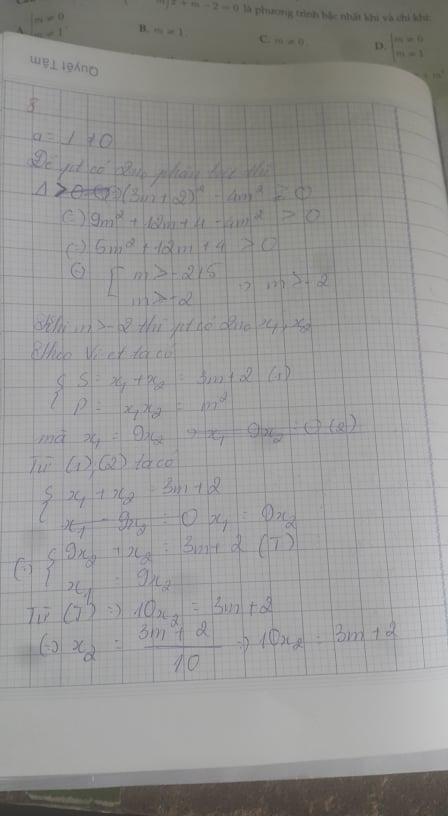 m)x + m - 2 = 0 là phương trình bậc nhất khi và chỉ khi:
A. { m ≠ 0
m = 1 .
B. m ≠ 1.
C. m ≠ 0.
D. [ m ≠ 0
m ≠ 1
Quyết Tâm
8
a = 1 ≠ 0
Để pt có 2no phân biệt thì
Δ > 0 (=) (3m+2)² - 4m² > 0
(=) 9m² + 12m + 4 - 4m² > 0
(=) 5m² + 12m + 4 > 0
(=) [ m > -2/5
m > -2 => m > -2
Khi m > -2 thì pt có 2no x₁, x₂
Theo Vi-et ta có
{ S = x₁ + x₂ = 3m+2 (1)
P = x₁x₂ = m²
mà x₁ = 9x₂ => x₁ - 9x₂ = 0 (2)
Từ (1), (2) ta có
{ x₁ + x₂ = 3m+2
x₁ - 9x₂ = 0 x₁ = 9x₂
(=) { 9x₂ + x₂ = 3m+2 (T)
x₁ = 9x₂
Từ (T) => 10x₂ = 3m+2
(=) x₂ = 3m+2 / 10 => 10x₂ = 3m+2